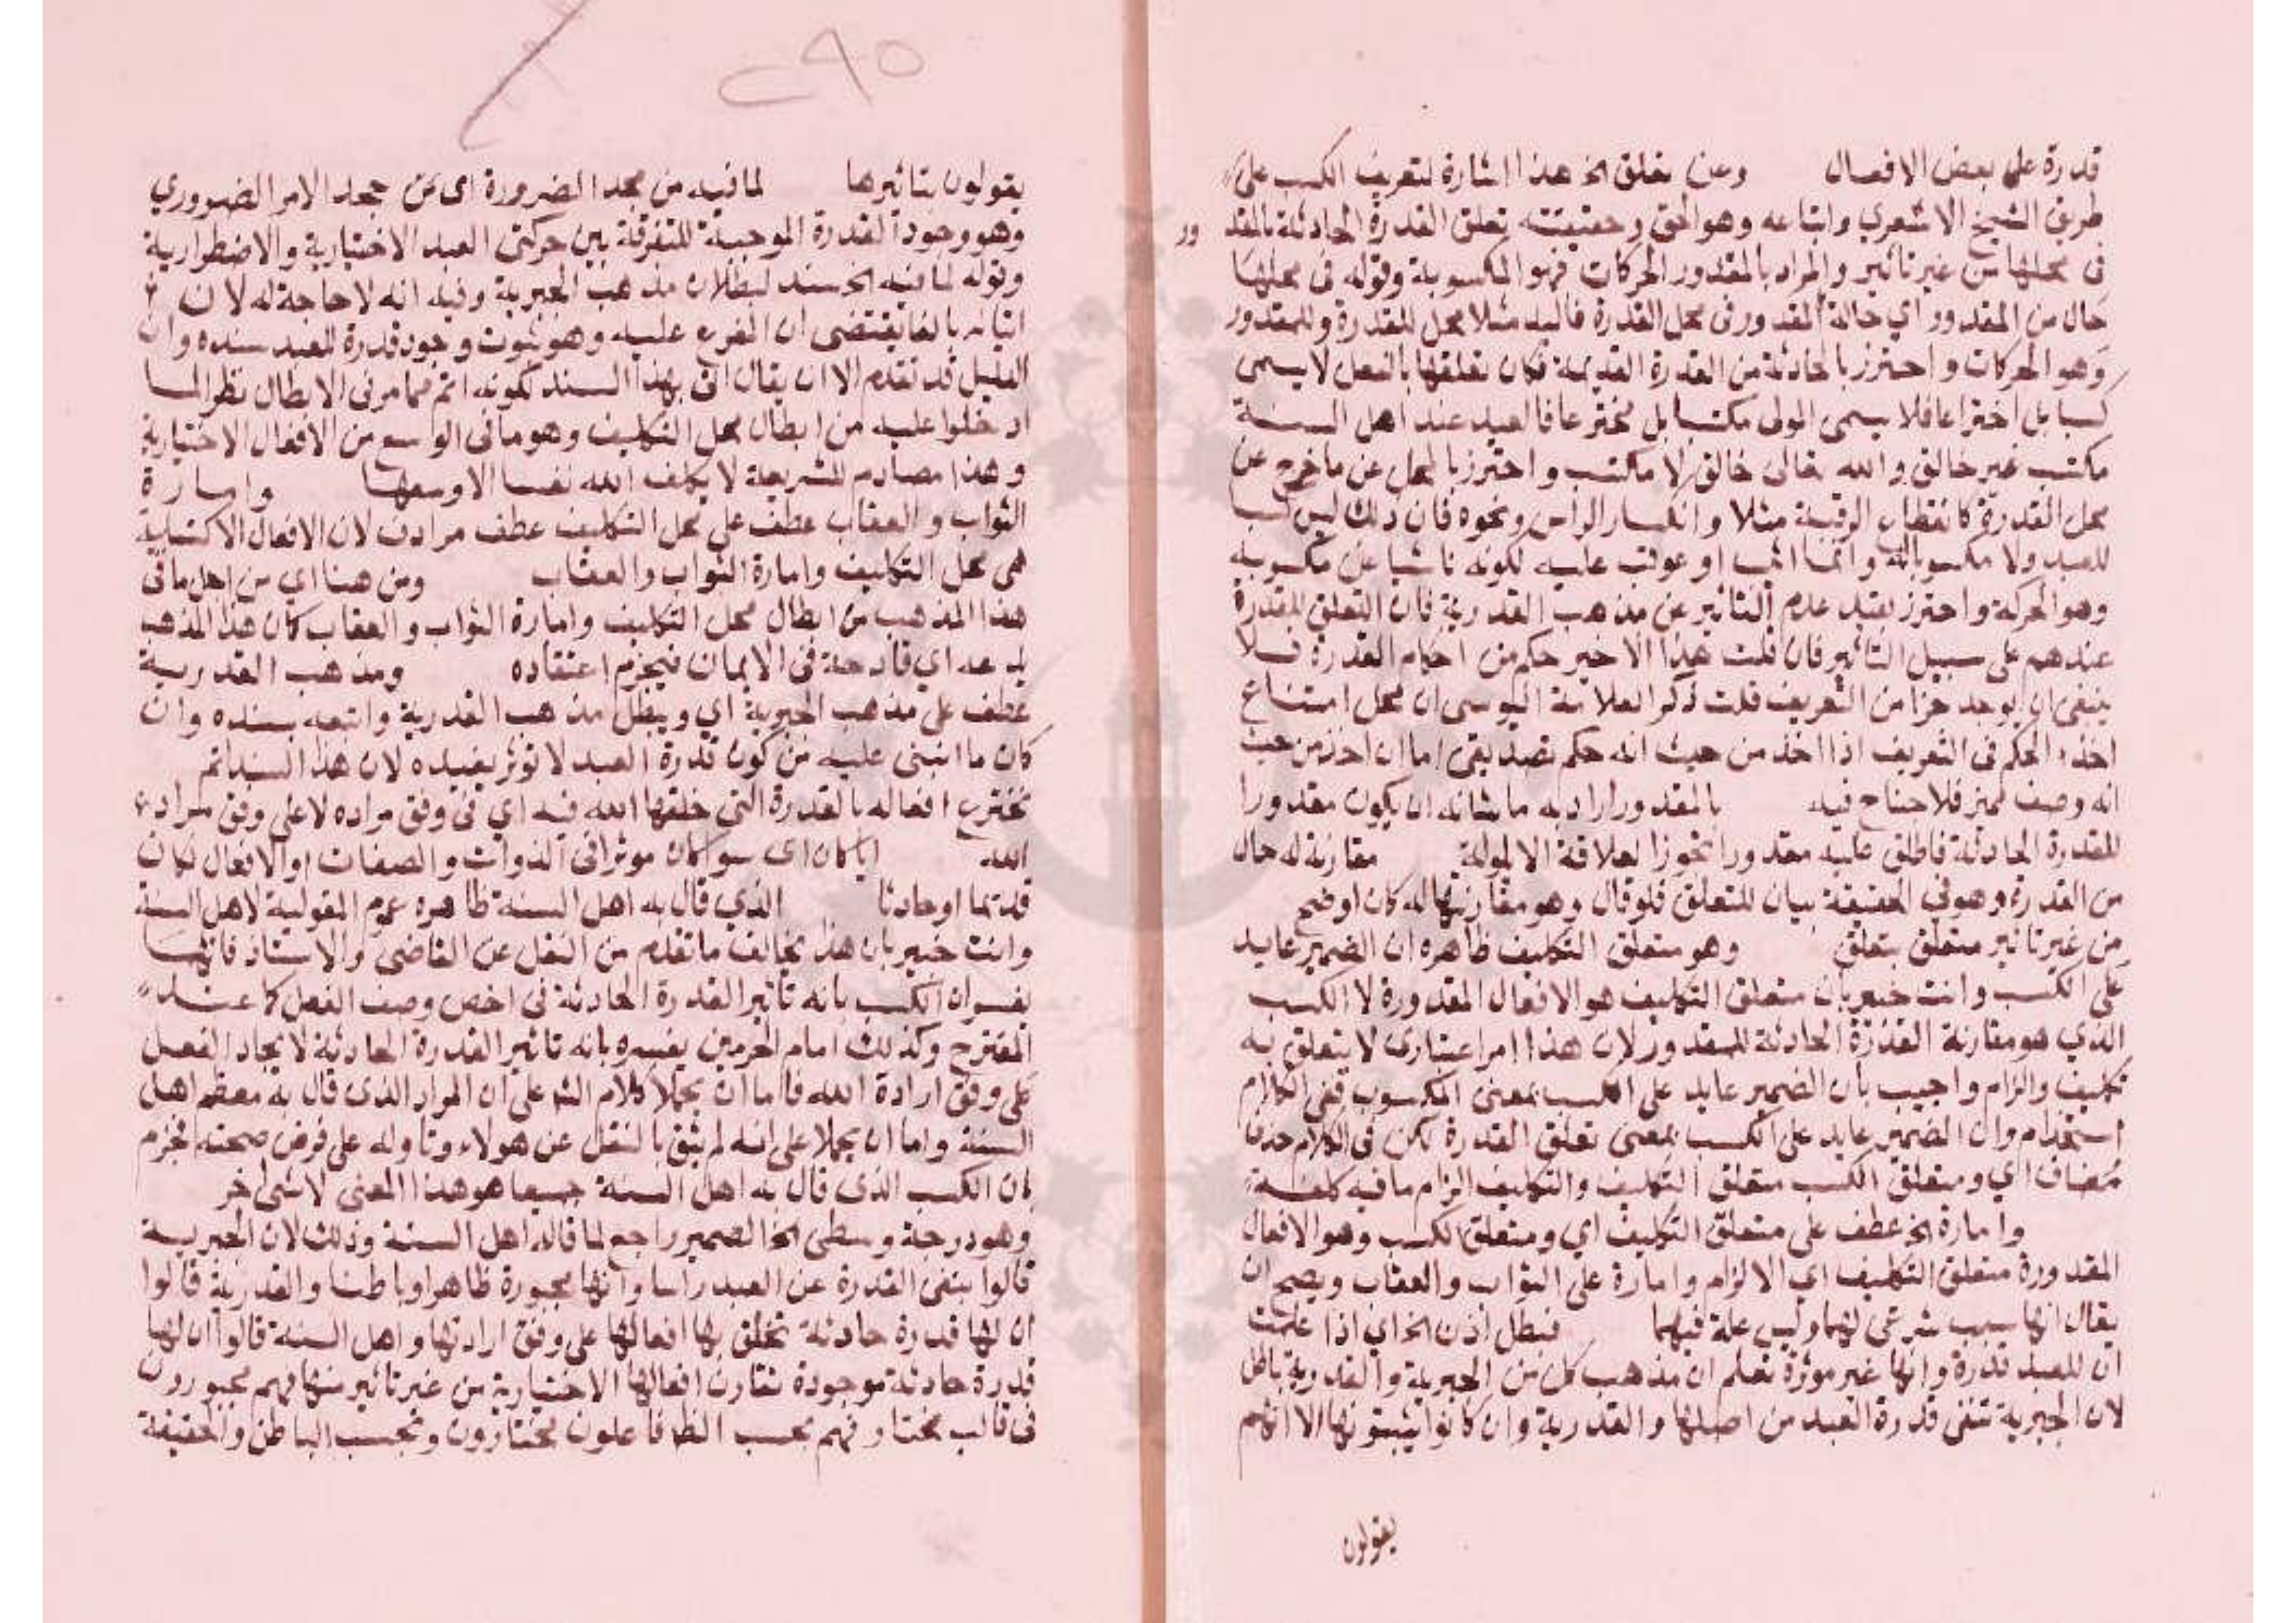 قدرة على بعض الافعال وعن تعلق الخ هذا اشارة لتعريف الكسب على
طريق الشيخ الاشعري واتباعه وهو الحق وحقيقته تعلق القدرة الحادثة بالمقدور
في محلها من غير تاثير والمراد بالمقدور الحركات فهو المكسوبة وقوله في محلها
حال من المقدور اي حالة المقدور في محل القدرة فاليد مثلا محل للقدرة وللمقدور
وهو الحركات واحترز بالحادثة من القدرة القديمة فكان تعلقها بالفعل لا يسمى
كسبا بل اختراعا فلا يسمى المولى مكتسبا بل مخترعا فالعبد عند اهل السنة
مكتسب غير خالق والله تعالى خالق لا مكتسب واحترز بالمحل عن ما خرج عن
محل القدرة كانقطاع الرقبة مثلا وانكسار الراس ونحوه فان ذلك ليس كسبا
للعبد ولا مكسوبا له وانما اثيب او عوقب عليه لكونه ناشيا عن مكسوبه
وهو الحركة واحترز بقيد عدم التاثير عن مذهب القدرية فان التعلق للقدرة
عندهم على سبيل التاثير فان قلت هذا الاخير حكم من احكام القدرة فلا
ينبغي ان يوجد جزا من التعريف قلت ذكر العلامة اليوسي ان محل امتناع
اخذ الحكم في التعريف اذا اخذ من حيث انه حكم تصديقي اما ان اخذ من حيث
انه وصف مميز فلا جناح فيه بالمقدور اراد به ما شانه ان يكون مقدورا
للقدرة الحادثة فاطلق عليه مقدورا تجوزا لعلاقة الاولة مقارنة له حال
من القدرة وهو في الحقيقة بيان للتعلق فلو قال وهو مقارنتها له كان اوضح
من غير تاثير متعلق بتعلق وهو متعلق التكليف ظاهره ان الضمير عايد
على الكسب وانت خبير بان متعلق التكليف هو الافعال المقدورة لا الكسب
الذي هو مقارنة القدرة الحادثة للمقدور لان هذا امر اعتباري لا يتعلق به
تكليف والزام واجيب بان الضمير عايد على الكسب بمعنى المكسوب ففي الكلام
استخدام وان الضمير عايد على الكسب بمعنى تعلق القدرة لكن في الكلام حذف
مضاف اي ومتعلق الكسب متعلق التكليف والتكليف الزام ما فيه كلفة
وامارة الخ عطف على متعلق التكليف اي ومتعلق الكسب وهو الافعال
المقدورة متعلق التكليف اي الالزام وامارة على الثواب والعقاب ويصح ان
يقال انها سبب شرعي لهما وليس علة فيهما فبطل اذن الخ اي اذا علمت
ان للعبد قدرة وانها غير موثرة تعلم ان مذهب كل من الجبرية والقدرية باطل
لان الجبرية تنفى قدرة العبد من اصلها والقدرية وان كانوا يثبتونها الا انهم
يقولون
٢٩٥
يقولون بتاثيرها لما فيه من جحد الضرورة اي من جحد الامر الضروري
وهو وجود القدرة الموجبة للتفرقة بين حركتي العبد الاختيارية والاضطرارية
وقوله لما فيه الخ سند لبطلان مذهب الجبرية وفيه انه لا حاجة له لان
اتيانه بالفا يقتضى ان المفرع عليه وهو ثبوت وجود قدرة للعبد سنده وان
الدليل قد تقدم الا ان يقال اتى بهذا السند لكونه اتم مما مر في الابطال نظرا لما
ادخلوا عليه من ابطال محل التكليف وهو ما في الوسع من الافعال الاختيارية
وهذا مصادم للشريعة لا يكلف الله نفسا الا وسعها وامارة
الثواب والعقاب عطف على محل التكليف عطف مرادف لان الافعال الاكتسابية
هي محل التكليف وامارة الثواب والعقاب ومن هنا اي من اجل ما في
هذا المذهب من ابطال محل التكليف وامارة الثواب والعقاب كان هذا المذهب
بدعه اي قادحة في الايمان فيحرم اعتقاده ومذهب القدرية
عطف على مذهب الجبرية اي ويبطل مذهب القدرية واتبعه بسنده وان
كان ما انبنى عليه من كون قدرة العبد لا توثر يفيده لان هذا السند اتم
تخترع افعاله بالقدرة التي خلقها الله فيه اي في وفق مراده لا على وفق مراد
الله ايا كان اي سوا كان موثرا في الذوات والصفات او الافعال كان
قديما او حادثا الذي قال به اهل السنة ظاهره عموم المقولية لاهل السنة
وانت خبير بان هذا يخالف ما تقدم من النقل عن القاضي والاستاذ فانهما
يفسران الكسب بانه تاثير القدرة الحادثة في اخص وصف الفعل كما عند
المقترح وكذلك امام الحرمين يفسره بانه تاثير القدرة الحادثة لايجاد الفعل
على وفق ارادة الله فاما ان يحملا كلام الش على ان المراد الذي قال به معظم اهل
السنة واما ان يحملا على انه لم يثق بالنقل عن هولاء وتاوله على فرض صحته فجزم
بان الكسب الذي قال به اهل السنة جميعا هو هذا المعنى لا شى اخر
وهو درجة وسطى الخ الضمير راجع لما قاله اهل السنة وذلك لان الجبرية
قالوا بنفى القدرة عن العبد راسا وانها مجبورة ظاهرا وباطنا والقدرية قالوا
ان لها قدرة حادثة تخلق بها افعالها على وفق ارادتها واهل السنة قالوا ان لها
قدرة حادثة موجودة تقارن افعالها الاختيارية من غير تاثير منها فهم مجبورون
في قالب مختار فهم بحسب الظ فاعلون مختارون وبحسب الباطن والحقيقة